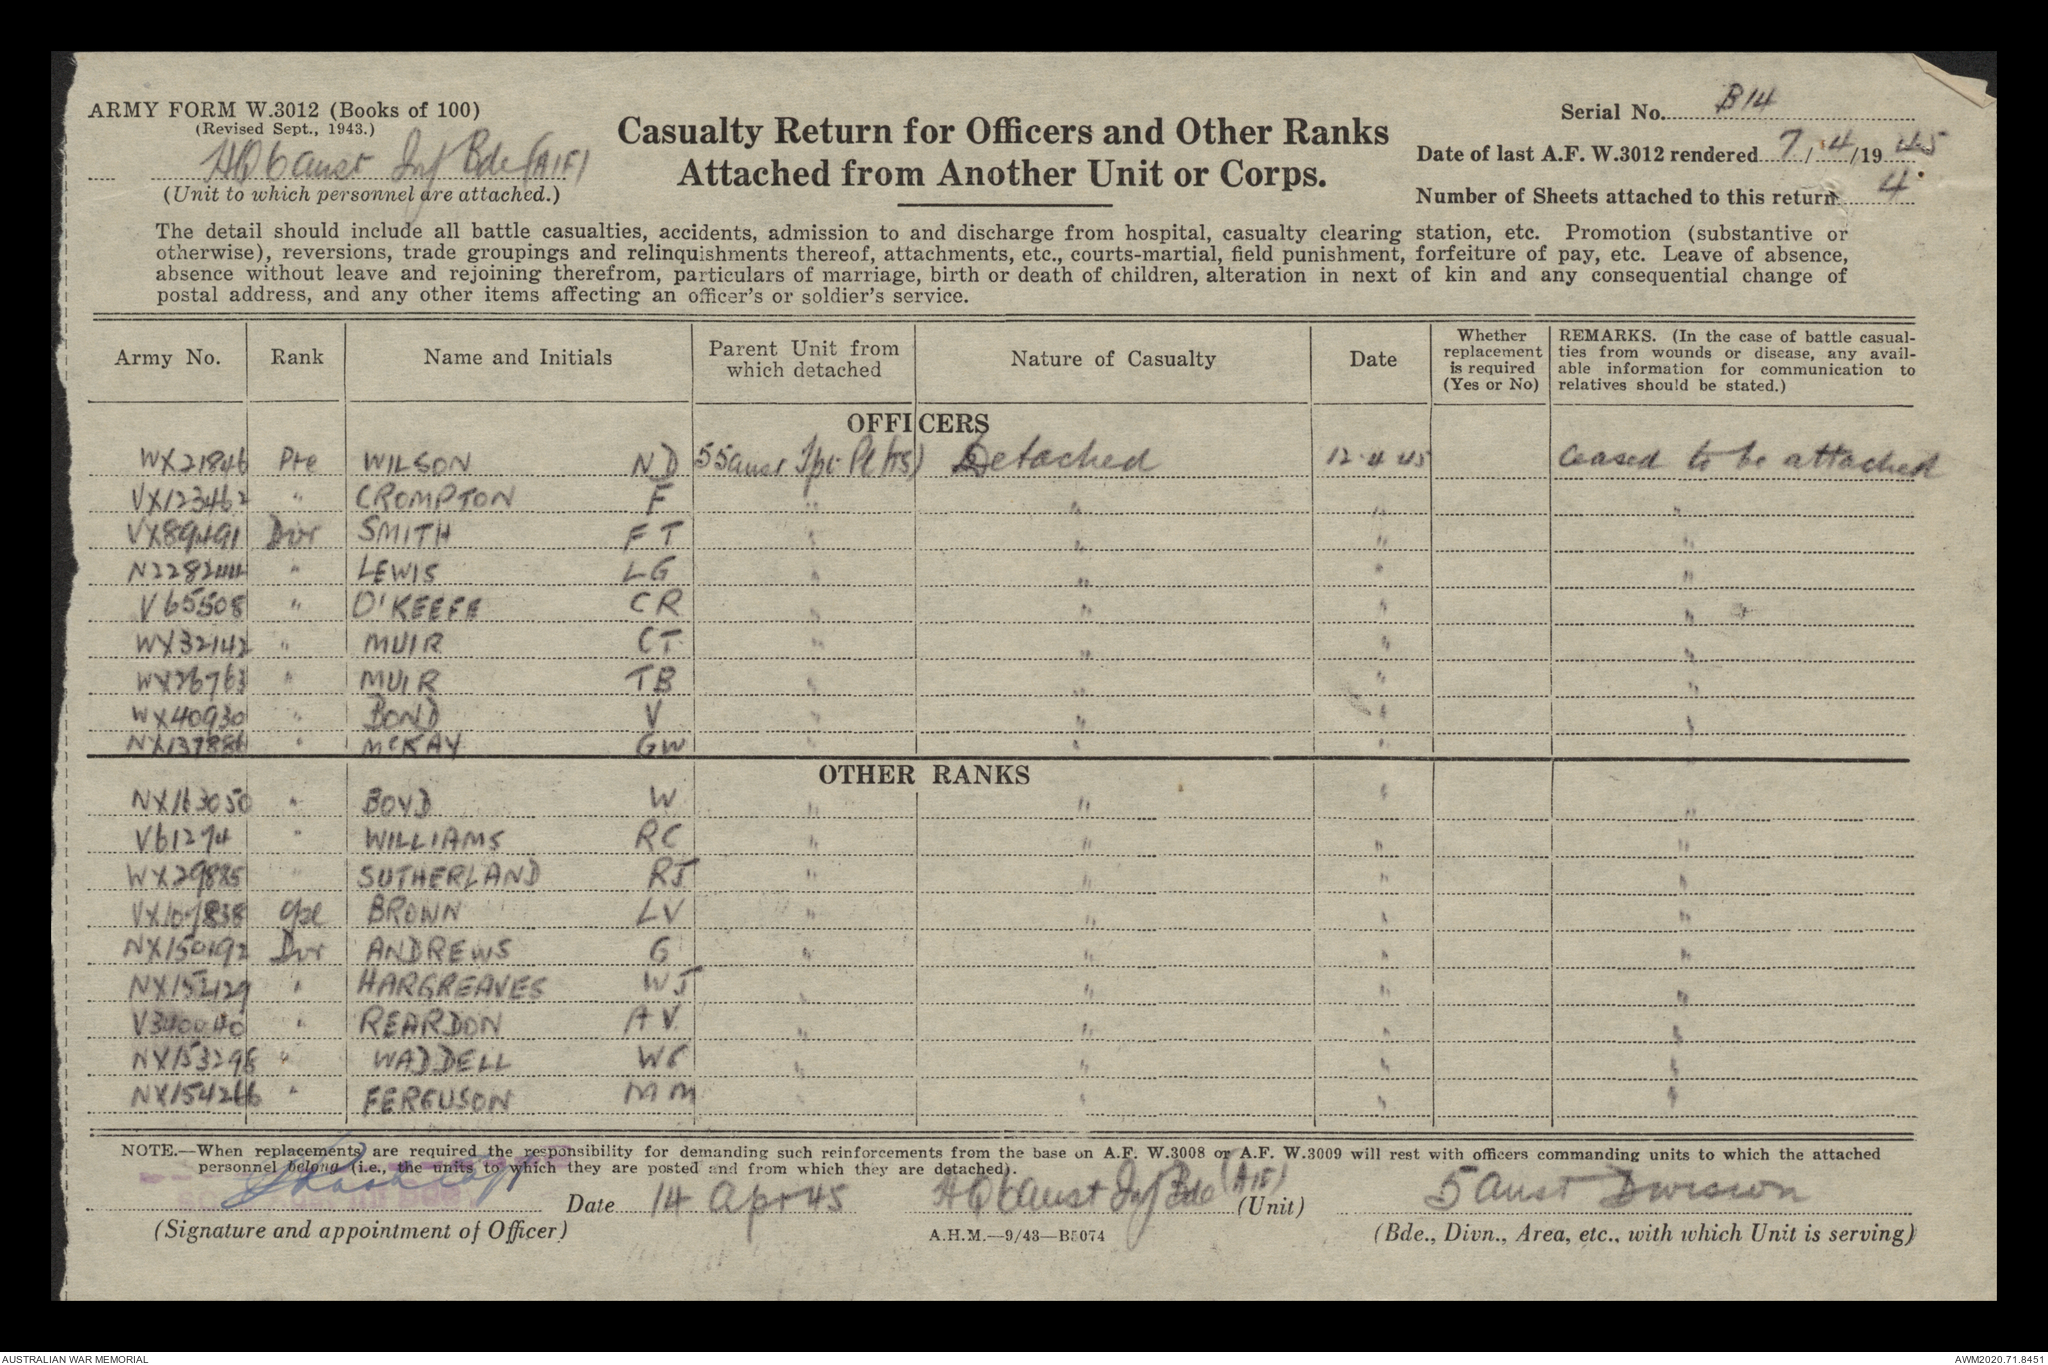 ARMY FORM W.3012 (Books of 100)
(Revised Sept., 1943.)
HQ 6 Aust Inf Bde (AIF)
(Unit to which personnel are attached.)
Casualty Return for Officers and Other Ranks
Attached from Another Unit or Corps.
Serial No. B14
Date of last A.F. W.3012 rendered 7/4/1945
Number of Sheets attached to this return 4.
The detail should include all battle casualties, accidents, admission to and discharge from hospital, casualty clearing station, etc. Promotion (substantive or
otherwise), reversions, trade groupings and relinquishments thereof, attachments, etc., courts-martial, field punishment, forfeiture of pay, etc. Leave of absence,
absence without leave and rejoining therefrom, particulars of marriage, birth or death of children, alteration in next of kin and any consequential change of
postal address, and any other items affecting an officer's or soldier's service.
Army No. Rank Name and Initials Parent Unit from which detached Nature of Casualty Date Whether replacement is required (Yes or No) REMARKS. (In the case of battle casualties from wounds or disease, any available information for communication to relatives should be stated.)
OFFICERS
WX21846 Pte WILSON ND 55 Aust Tpt Pl Detached 12.4.45 Ceased to be attached
VX123462 " CROMPTON F " " " "
VX89491 Dvr SMITH FT " " " "
N228244 " LEWIS LG " " " "
V65508 " O'KEEFE CR " " " "
WX32142 " MUIR CT " " " "
WX26763 " MUIR TB " " " "
WX40930 " BOND V " " " "
NX137886 " McKAY GW " " "
OTHER RANKS
NX163050 " BOYD W " " " "
V61274 " WILLIAMS RC " " " "
WX29885 " SUTHERLAND RJ " " " "
VX107838 Cpl BROWN LV " " " "
NX150192 Dvr ANDREWS G " " " "
NX152129 " HARGREAVES WJ " " " "
V340040 " REARDON AV " " " "
NX153298 " WADDELL " " " "
NX154266 " FERGUSON MM " " " "
NOTE.—When replacements are required the responsibility for demanding such reinforcements from the base on A.F. W.3008 or A.F. W.3009 will rest with officers commanding units to which the attached
personnel belong (i.e., the units to which they are posted and from which they are detached).
Date 14 Apr 45 HQ 6 Aust Inf Bde (AIF) (Unit) 5 Aust Division
(Signature and appointment of Officer) A.H.M.—9/43—B5074 (Bde., Divn., Area, etc., with which Unit is serving)
AUSTRALIAN WAR MEMORIAL AWM2020.71.8451